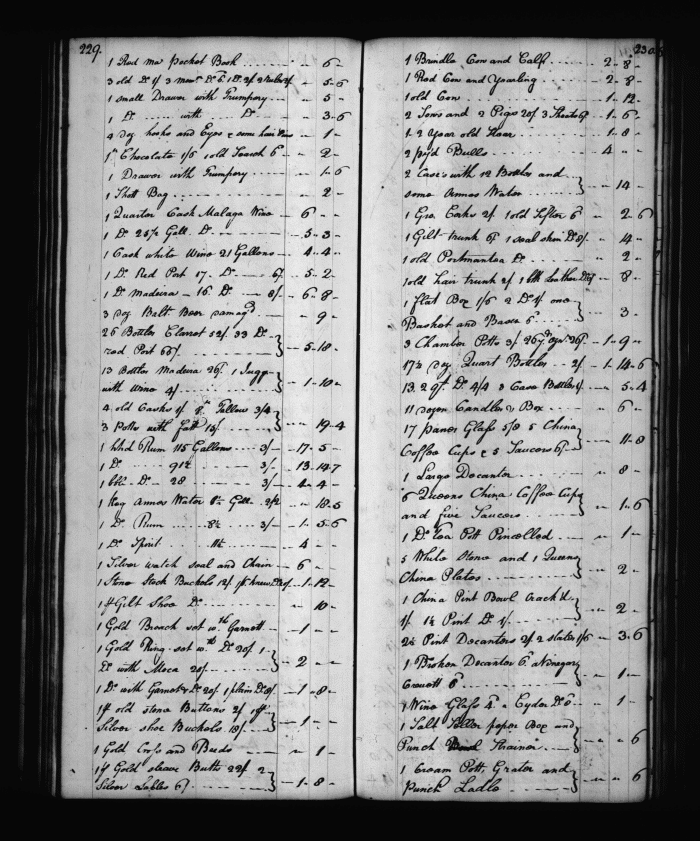 229.
1 Red Mo Pocket Book ... " 6 "
3 old Do 1/ 3 mem Do 6. 1 Do 2/ 2 Rules .. 5 - 6
1 small Drawer with Trumpery ... " 5 "
1 Do ... with ... Do ... " 3 - 6
4 doz hooks and Eyes & some hair Pins - " 1 -
1 lb Chocolate 1/6 1 old 6d - " 2 -
1 Drawer with Trumpery .... - " 1 - 6
1 Shott Bag ... " 2 -
1 Quarter Cask Malaga Wine - 6 " "
1 Do 25 1/2 Gall Do ... - 5 - 3
1 Cask white Wine 21 Gallons - 4 - 4 -
1 Do Red Port 17 - Do ... 6/ - 5 - 2
1 Do Madeira - 16 Do ... 8/ - 6 - 8 -
3 doz Balt Beer damagd ... " 9 "
26 Bottles Clarret 52/ 33 Do
red Port 66/ } - 5 - 18 -
13 Bottles Madeira 26/. 1 Jugg
with Wine 4/ } - 1 - 10 -
4 old Casks 4/ 8 lb Tallow 3/4
3 Potts with fatt 12/ } - " 19 - 4
1 hhd Rum 115 Gallons ... 3/ - 17 - 5 -
1 Do ... 91 1/2 ... 3/ - 13 - 14 - 7
1 bbl Do - 28 ... 3/ - 4 - 4 -
1 Keg Annes Water 8 1/2 Gall. 2/2 " 18 - 5
1 Do Rum ... 8 1/2 ... 3/ - 1 - 5 - 6
1 Do Spirit ... 11 1/2 ... - 4 - "
1 Silver watch seal and Chain - 6 - "
1 Stone Stock Buckels 12/ - 1 - 12 -
1 pr Gilt Shoe Do ... " 10 "
1 Gold Broach set wth Garnett - 1 - "
1 Gold Ring set wth Do 20/ 1
Do with Moca 20/ } - 2 - "
1 Do with Garnet & Do 20/ 1 plain Do 8/ - 1 - 8 -
1 pr old stone Buttons 2/ 1 pr
Silver shoe Buckels 18/ } - 1 - "
1 Gold Crss and Beeds ... " 1 -
1 pr Gold sleave Butts 22/ 2
Silver Lables 6/ } - 1 - 8 -
230
1 Brindle Cow and Calf ... 2 - 8 -
1 Red Cow and Yearling ... 2 - 8 -
1 old Cow ... 1 - 12 -
2 Sows and 2 Pigs 20/ 3 Shoats 6/ - 1 - 6
1 - 2 Year old Steer ... 1 - 8 -
2 pyd Bulls ... 4 " "
2 Cases with 12 Bottles and
some Annes Water } " 14 -
1 Gro. Corks 2/ 1 old Sifter 6d " 2 - 6
1 Gilt trunk 6/ 1 seal skin Do 8/. " 14 -
1 old Portmantea Do ... " 2 -
1 old hair trunk 2/ 1 blk leather Do 6/ " 8 -
1 Flat Box 1/6 2 Do 1/ one
Basket and Bason 6d } " 3 -
3 Chamber Potts 3/. 26/. - 1 - 9 -
17 1/2 doz Quart Bottles ... 2/ - 1 - 14 - 6
13. 2 qt Do 4/4 3 Case Bottles 1/ " 5 - 4
11 dozen Candles & Box ... " 6 "
17 panes Glass 5/8 5 China
Coffee Cups & 5 Saucers 6/ } " 11 - 8
1 Large Decanter ... " 8 -
6 Queens China Coffee Cups
and five Saucers } " 1 - 6
1 Do tea Pott Pincelled ... " 1 -
5 White Stone and 1 Queens
China Plates } " 2 -
1 China Pint Bowl Crack'd
1/ 1 1/2 Pint Do 1/ } " 2 -
2 1/2 Pint Decanters 2/ 2 slates 1/6 " 3 - 6
1 Broken Decanter 6d a Vinegar
Crewett 6d } " 1 -
1 Wine Glass 4d a Cyder Do 8d " 1 -
1 Salt Seller peper Box and
Punch Strainer } " " 6
1 Cream Pott, Grater and
Punch Ladle } " " 6